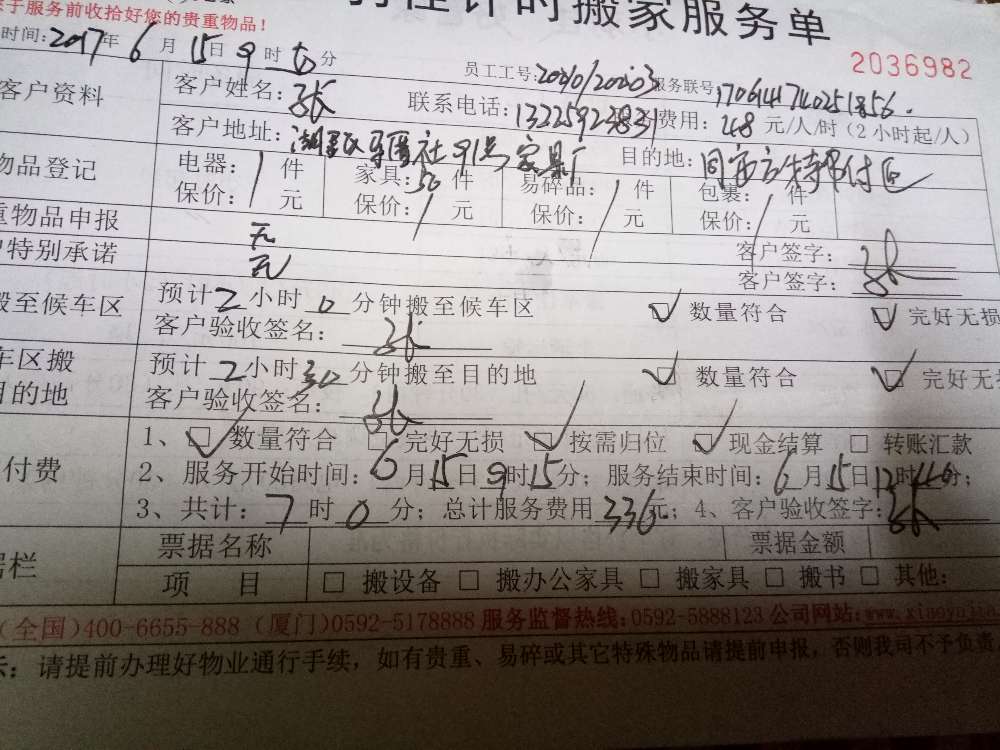 于服务前收拾好您的贵重物品!
计时搬家服务单
时间:2017年6月15日9时 分
员工工号:
服务联号:1706141740251856.
2036982
客户资料
客户姓名:张
联系电话:13225923831
费用:48元/人/时(2小时起/人)
客户地址:湖里区 社91号家具厂
目的地:同安
物品登记
电器:/件
家具:50件
易碎品:/件
包裹:/件
保价:/元
保价:/元
保价:/元
保价:/元
重物品申报
无
客户签字:张
特别承诺
无
客户签字:张
搬至候车区
预计2小时0分钟搬至候车区
☑数量符合
☑完好无损
客户验收签名:张
车区搬
目的地
预计2小时30分钟搬至目的地
☑数量符合
☑完好无
客户验收签名:张
付费
1、☑数量符合 □完好无损 ☑按需归位 ☑现金结算 □转账汇款
2、服务开始时间:6月15日9时15分;服务结束时间:6月15日12时46分;
3、共计:7时0分;总计服务费用336元;4、客户验收签字:张
据栏
票据名称
票据金额
项 目
□搬设备 □搬办公家具 □搬家具 □搬书 □其他:
(全国)400-6655-888 (厦门)0592-5178888 服务监督热线:0592-5888123 公司网站:www.
示:请提前办理好物业通行手续,如有贵重、易碎或其它特殊物品请提前申报,否则我司不予负责